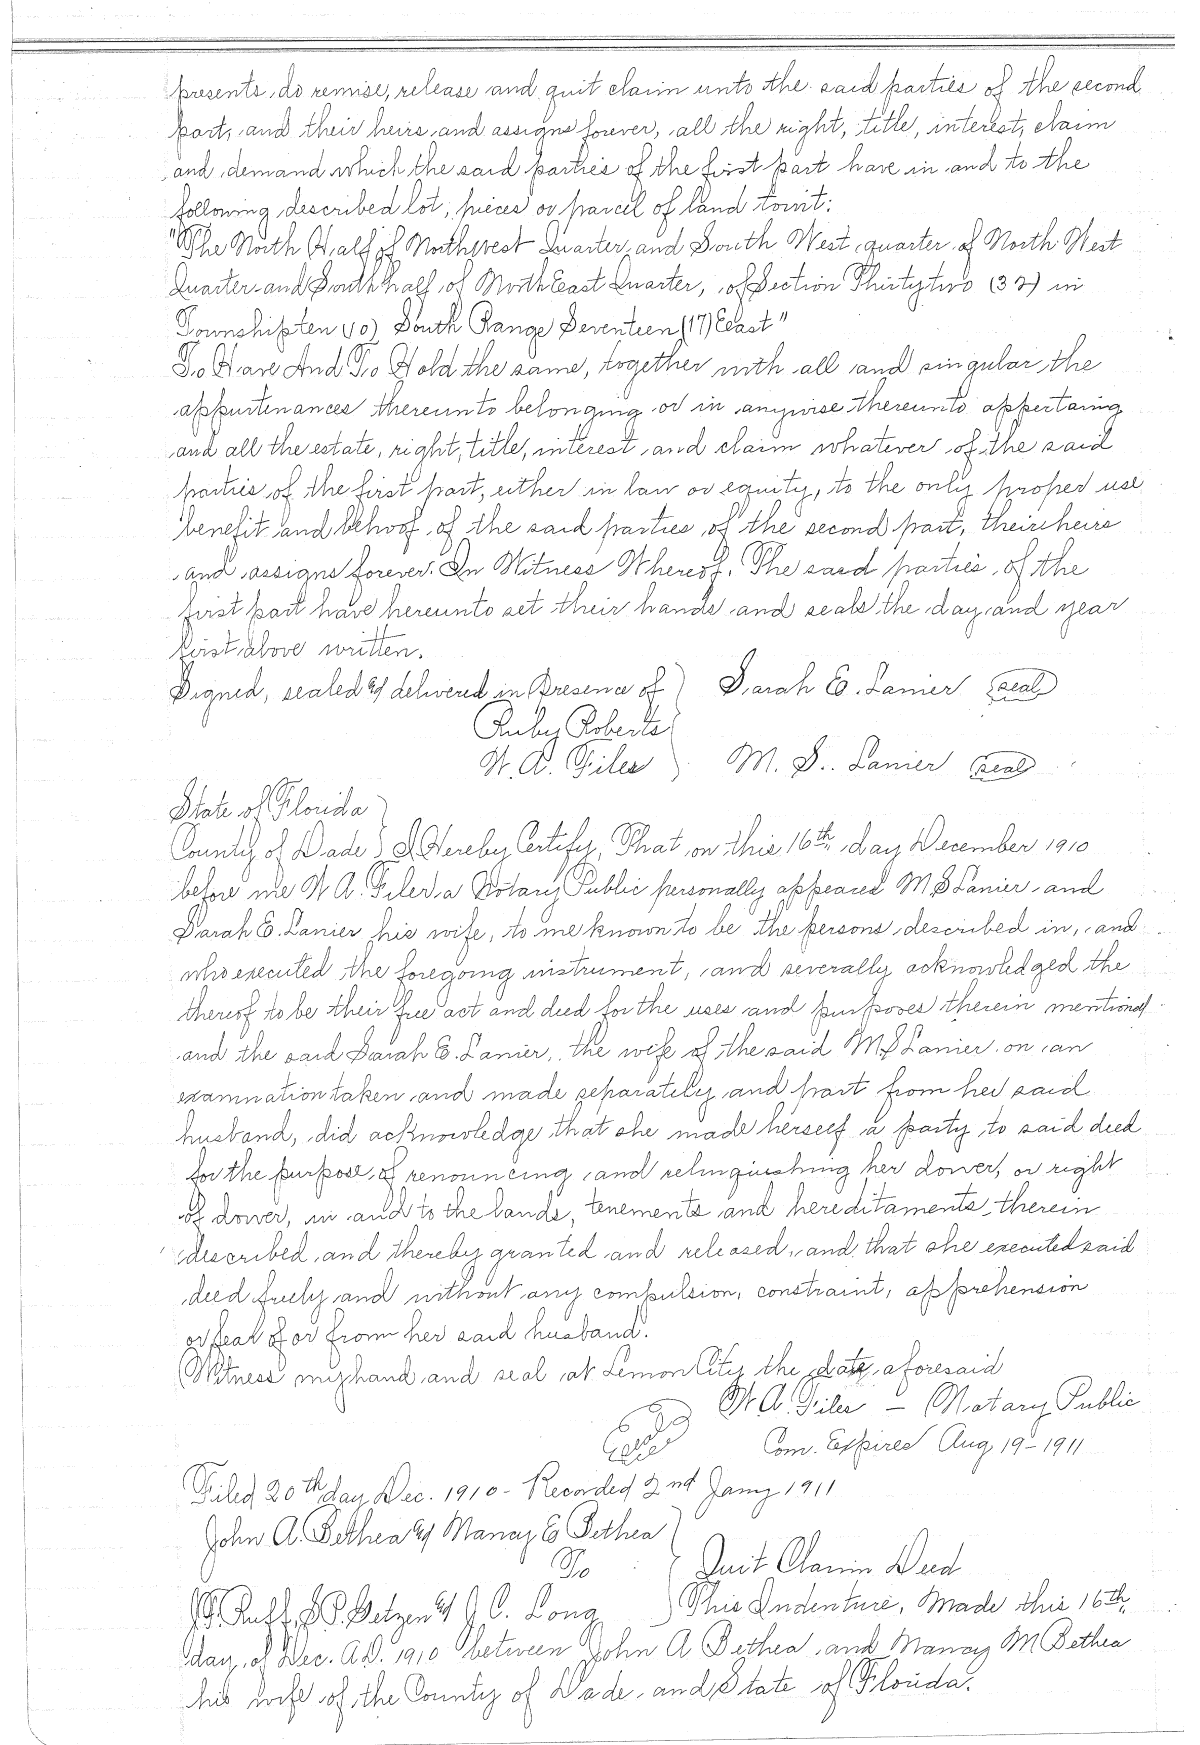 presents, do remise, release and quit claim unto the said parties of the second
part, and their heirs and assigns forever, all the right, title, interest, claim
and demand which the said parties of the first part have in and to the
following described lot, pieces or parcel of land towit:
"The North Half of Northwest Quarter and South West quarter of North West
Quarter and South half of North East Quarter, of Section Thirtytwo (32) in
Township ten (10) South Range Seventeen (17) East"
To Have And To Hold the same, together with all and singular the
appurtinances thereunto belonging or in anywise thereunto appertaing
and all the estate, right, title, interest and claim whatever of the said
parties of the first part, either in law or equity, to the only proper use
benefit and behoof of the said parties of the second part, their heirs
and assigns forever. In Witness Whereof, The said parties of the
first part have hereunto set their hands and seals the day and year
first above written.
Signed, sealed & delivered in Presence of } Sarah E. Lanier (seal)
Ruby Roberts
W. A. Filer } M. S. Lanier (seal)
State of Florida }
County of Dade } I Hereby Certify, That on this 16th day December 1910
before me W A. Filer a Notary Public personally appeared M S Lanier and
Sarah E. Lanier his wife, to me known to be the persons described in, and
who executed the foregoing instrument, and severally acknowledged the
thereof to be their free act and deed for the uses and purposes therein mentioned
and the said Sarah E. Lanier, the wife of the said M S Lanier on an
examnation taken and made separately and part from her said
husband, did acknowledge that she made herself a party to said deed
for the purpose of renouncing and relinquishing her dower, or right
of dower, in and to the lands, tenements and hereditaments therein
described and thereby granted and released, and that she executed said
deed freely and without any compulsion, constraint, apprehension
or fear of or from her said husband.
Witness my hand and seal at Lemon City the date aforesaid
W. A. Filer – Notary Public
Seal Com. Expires Aug 19–1911
Filed 20th day Dec. 1910 – Recorded 2nd Jany 1911
John A. Bethea & Nancy E Bethea }
To } Quit Claim Deed
Ruff, S P. Getzen & J C. Long } This Indenture, Made this 16th
day of Dec. A.D. 1910 between John A Bethea and Nancy M Bethea
his wife of the County of Dade and State of Florida.